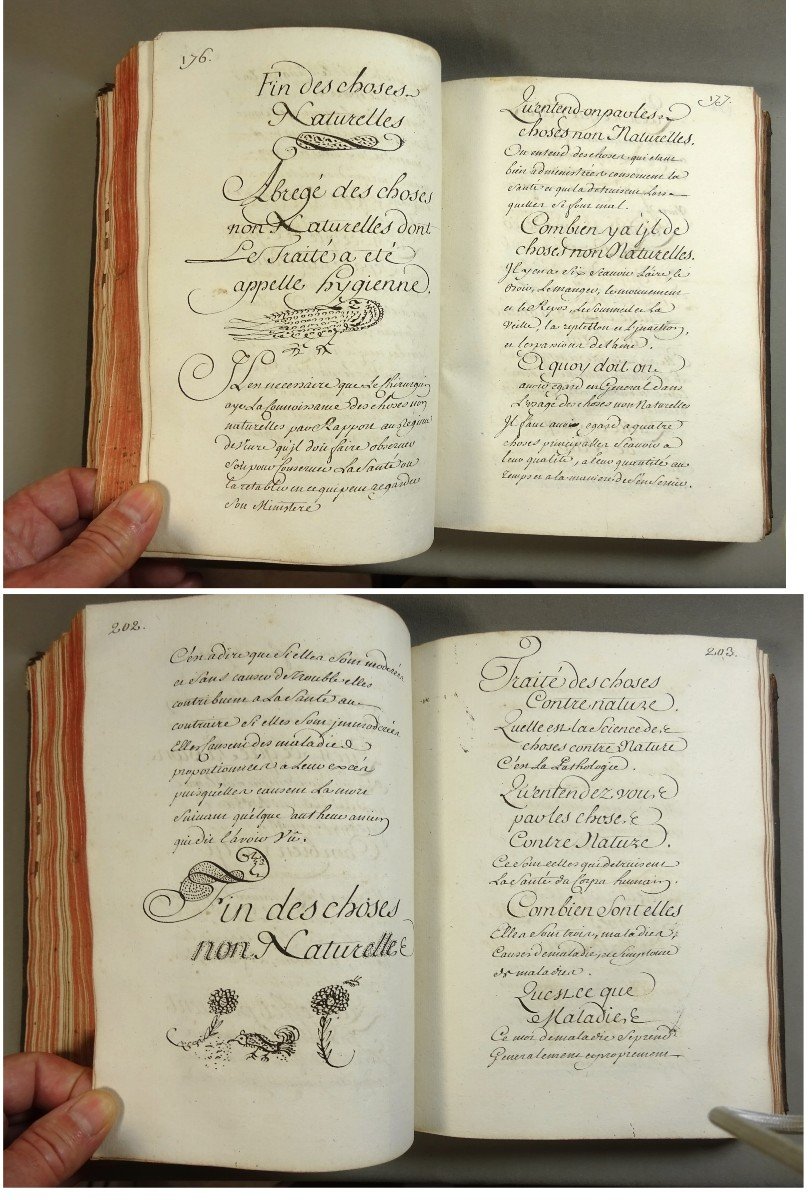 176.
Fin des choses
Naturelles
Abregé des choses
non Naturelles dont
Le Traité a eté
appelle hygienne.
Il en necessaire que Le Chirurgien
aye La Connoissance des choses non
naturelles par Rapport au Regime
de vivre qu'il doit faire observer
soit pour Conserver La Santé ou
la retablir en ce qui peut regarder
Son Ministere
177.
Qu'entend on par les
choses non Naturelles.
On entend des choses qui etant
bien administrées conservent la
Santé et qui la detruisent Lors
quelles se font mal.
Combien y a'ijl de
choses non Naturelles.
Jl y en a Six Scavoir L'aire, le
Boire, Le manger, le mouvement
et le Repos, Le Sommeil et La
Veille, la repletion et L'jnaction,
et les passions de l'ame.
A quoy doit on
avoir egard en General dans
L'usage des choses non Naturelles
Jl faut avoir egard a quatre
choses principalles Scavoir a
leur qualité, a leur quantité au
temps et a la maniere de S'en Servir.
202.
C'en a dire que Si elles Sont moderées
et Sans causer de trouble elles
contribuent a La Santé au
contraire Si elles Sont jmmoderées
Elles Causent des maladies
proportionnées a Leur excés
puisquelles causent La mort
Suivant quelque autheur ancien
qui dit l'avoir Vû.
Fin des choses
non Naturelles
203.
Traité des choses
Contre nature.
Quelle est la Science des
choses contre Nature
C'en La Pathologie.
Qu'entendez vous
par les choses
Contre Nature.
Ce Sont celles qui detruisent
La Santé du Corps humain.
Combien Sont elles
Elles Sont trois, maladies,
Causes de maladie, et Simptome
de maladies.
Quest ce que
Maladies
Ce mot de maladie Se prend
Generalement et proprement